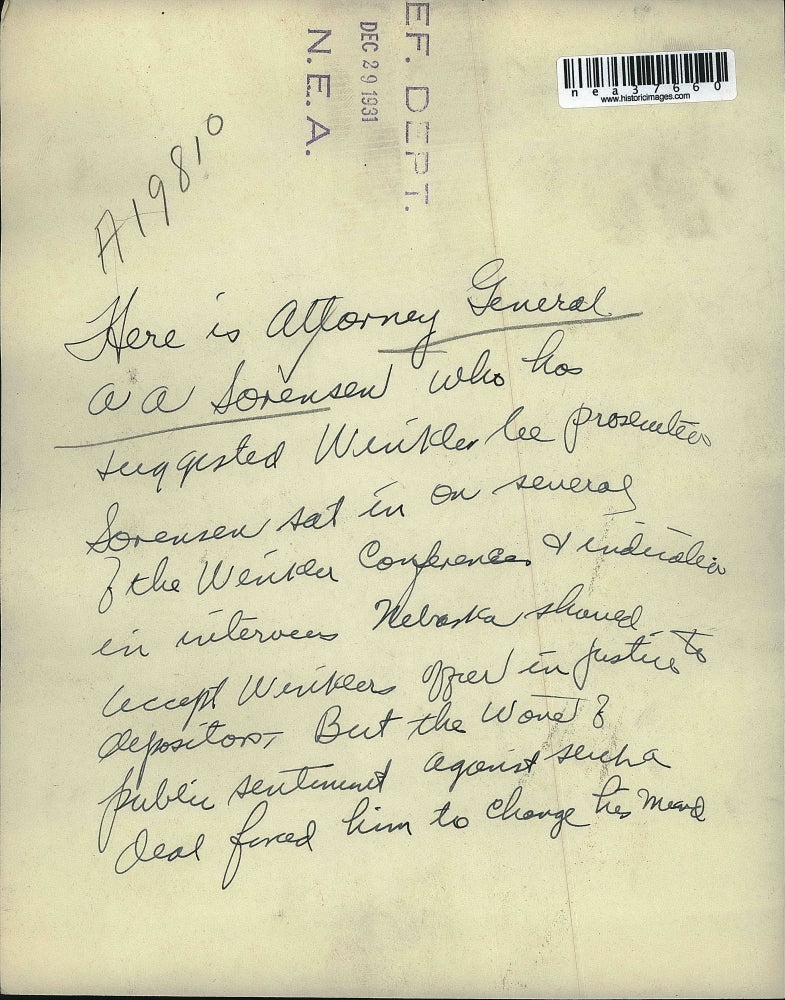 EF. DEPT.
DEC 29 1931
N.E.A.
nea37660
www.historicimages.com
A19810
Here is Attorney General
a a Sorensen who has
suggested Winkler be prosecuted
Sorensen sat in on several
of the Winkler Conferences & indicated
in interviews Nebraska should
accept Winklers offer in justice to
depositors- But the Wave of
public sentiment against such a
deal forced him to change his mind